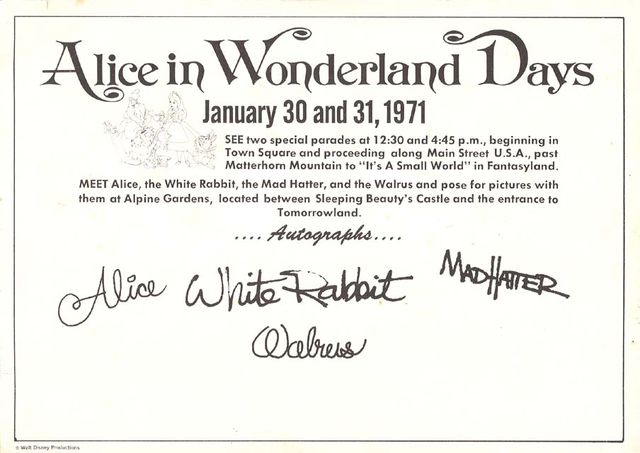 Alice in Wonderland Days
January 30 and 31, 1971
SEE two special parades at 12:30 and 4:45 p.m., beginning in
Town Square and proceeding along Main Street U.S.A., past
Matterhorn Mountain to "It's A Small World" in Fantasyland.
MEET Alice, the White Rabbit, the Mad Hatter, and the Walrus and pose for pictures with
them at Alpine Gardens, located between Sleeping Beauty's Castle and the entrance to
Tomorrowland.
.... Autographs....
Alice White Rabbit MAD HATTER
Walrus
© Walt Disney Productions